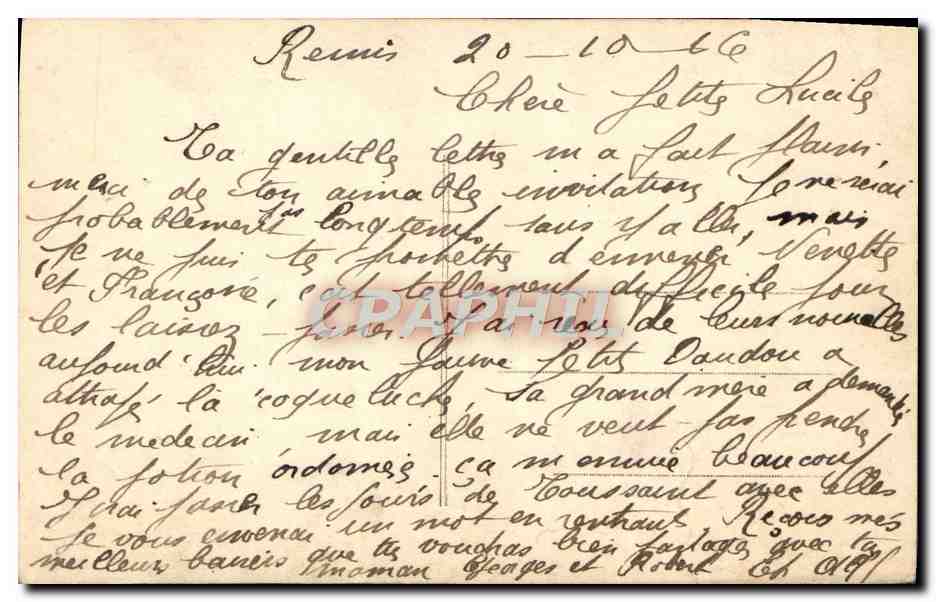 Reims 20-10-16
Chère Petite Lucile
Ta gentille lettre m'a fait plaisir,
merci de ton aimable invitation Je ne serai
probablement pas longtemps sans y aller, mais
Je ne puis te promettre d'emmener Venette
et Françoise, c'est tellement difficile pour
les laissez-passer. J'ai reçu de leurs nouvelles
aujourd'hui mon pauvre petit Doudou a
attrapé la coqueluche, sa grand mère a demandé
le medecin mais elle ne veut pas prendre
la potion ordonnée. ça m'ennuie beaucoup
J'irai passer les jours de Toussaint avec elles
Je vous enverrai un mot en rentrant, Reçois mes
meilleurs baisers que tu voudras bien partager avec ta
maman Georges et Robert
CPAPHIL